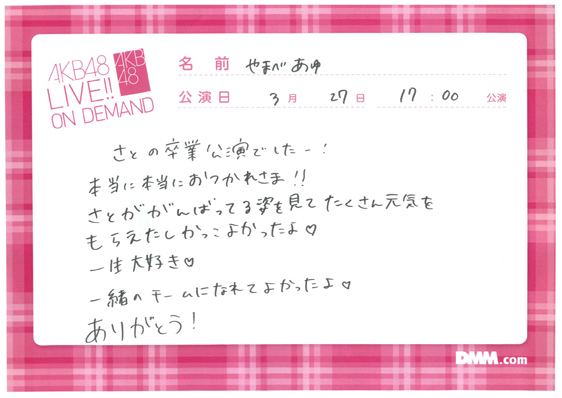 AKB48
LIVE!!
ON DEMAND
AKB
48
名 前 やまべあゆ
公演日 3月 27日 17:00 公演
さとの卒業公演でしたー!
本当に本当におつかれさま!!
さとががんばってる姿を見てたくさん元気を
もらえたしかっこよかったよ♡
一生大好き♡
一緒のチームになれてよかったよ♡
ありがとう!
DMM.com